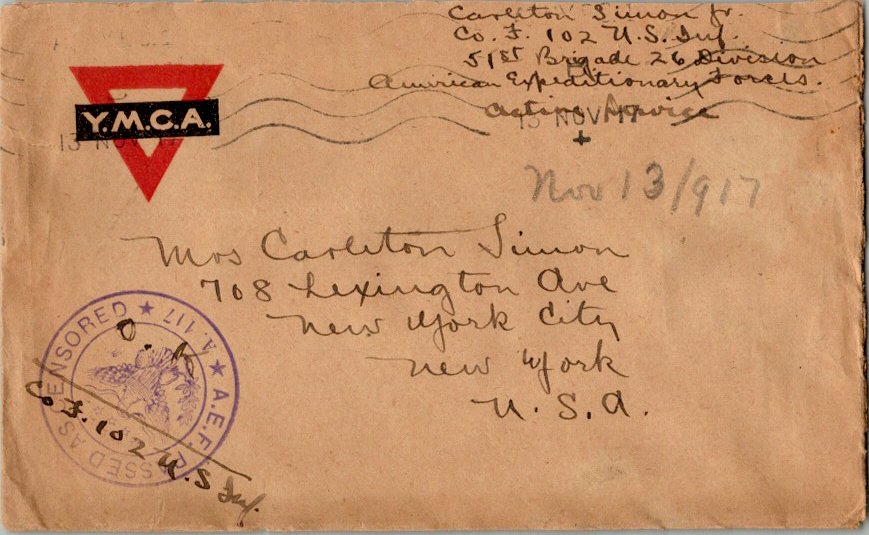 Carleton Simon Jr.
Co. F. 102 U.S. Inf.
51st Brigade 26 Division
American Expeditionary Forces.
Active Service
Y.M.C.A.
13 NOV 17
13 NOV 17
Nov 13/917
Mrs Carleton Simon
708 Lexington Ave
New York City
New York
U.S.A.
A.E.F. PASSED AS CENSORED ★ A.117 ★
O.K.
Co F. 102 U.S Inf.